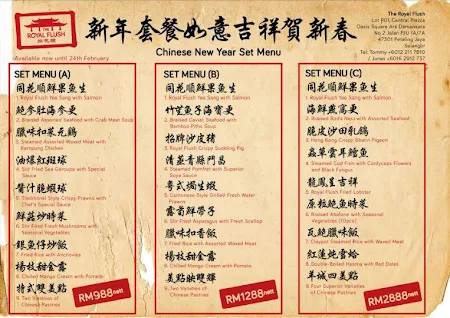 ROYAL FLUSH
新年套餐如意吉祥賀新春
Chinese New Year Set Menu
Available now until 24th February
The Royal Flush
Lot P01, Central Piazza
Oasis Square Ara Damansara
No 2 Jalan PJU 1A/7A
47301 Petaling Jaya
Selangor
Tel: Tommy +6012 211 7810
/ Jones +6016 2912 737
SET MENU (A)
同花順鮮果魚生
1. Royal Flush Yee Sang with Salmon
2. Braised Assorted Seafood with Crab Meat Soup
臘味扣菜元鷄
3. Steamed Assorted Waxed Meat with
Kampung Chicken
油爆紅斑球
4. Stir Fried Sea Garoupa with Special
Sauce
醬汁脆蝦球
5. Traditional Style Crispy Prawns with
Chef's Special Sauce
鮮菇炒時菜
6. Stir Fried Fresh Mushrooms with
Seasonal Vegetables
銀魚仔炒飯
7. Fried Rice with Anchovies
楊枝甜金露
8. Chilled Mango Cream with Pomelo
特式雙美點
9. Two Varieties of
Chinese Pastries
RM988nett
SET MENU (B)
同花順鮮果魚生
1. Royal Flush Yee Sang with Salmon
竹笙魚茸海寶羹
2. Braised Caviar Seafood with
Bamboo Piths Soup
招牌沙皮豬
3. Royal Flush Crispy Suckling Pig
清蒸青縣門昌
4. Steamed Pomfret with Superior
Soya Sauce
粵式焗生蝦
5. Cantonese Style Grilled Fresh Water
Prawns
露筍鮮帶子
6. Stir Fried Asparagus with Scallop
臘味扣香飯
7. Fried Rice with Assorted Waxed Meat
楊枝甜金露
8. Chilled Mango Cream with Pomelo
美點映雙輝
9. Two Varieties of
Chinese Pastries
RM1288nett
SET MENU (C)
同花順鮮果魚生
1. Royal Flush Yee Sang with Salmon
海鮮燕窩羹
2. Braised Birds Nest with Assorted Seafood
脆皮沙田乳鴿
3. Hong Kong Crispy Pigeon
蟲草雲耳鱈魚
4. Steamed Cod Fish with Cordyceps Flowers
and Black Fungus
龍鳳呈吉祥
5. Royal Flush Fried Lobster
原粒鮑魚時菜
6. Braised Abalone with Seasonal
Vegetables (10pcs)
瓦鮑臘味飯
7. Claypot Steamed Rice with Waxed Meat
紅蓮炖雪蛤
8. Double-Boiled Hasma with Red Dates
羊城四美點
9. Four Superior Varieties
of Chinese Pastries
RM2888nett